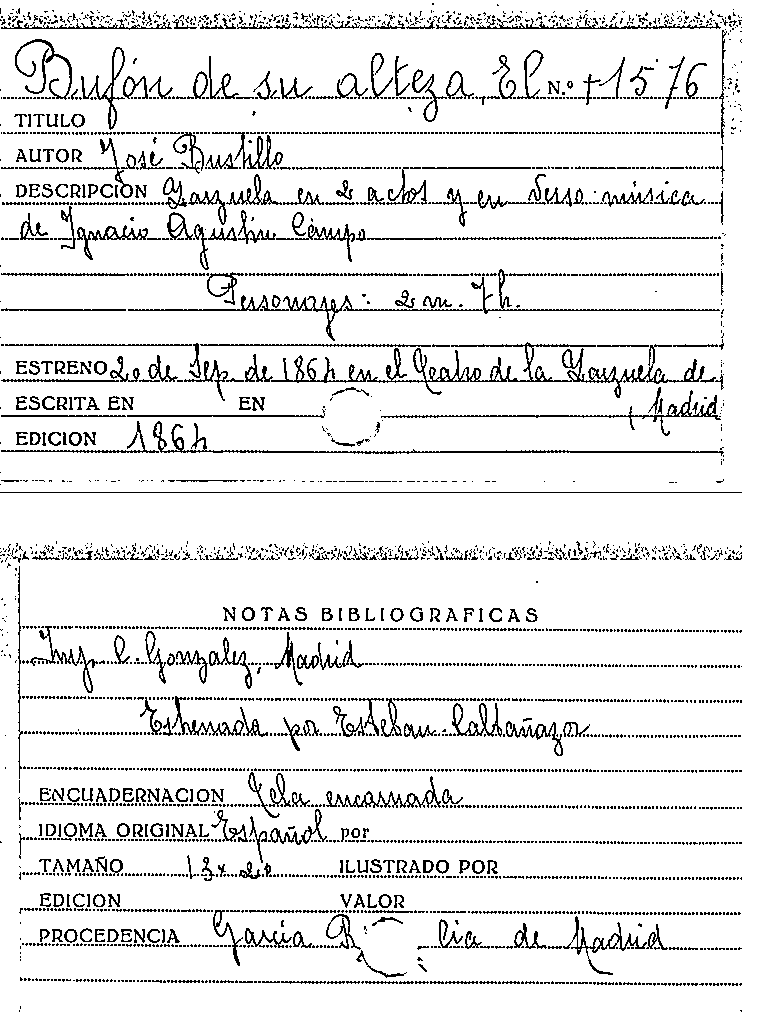 Bufón de su alteza, El N.º +1576
TITULO
AUTOR José Bustillo
DESCRIPCION Zarzuela en 2 actos y en verso música
de Ignacio Agustín Campo
Personajes: 2 m. 7 h.
ESTRENO 20 de Sep. de 1864 en el Teatro de la Zarzuela de
ESCRITA EN EN Madrid
EDICION 1864
NOTAS BIBLIOGRAFICAS
Imp. C. Gonzalez, Madrid
Estrenada por Esteban. Caltañazor
ENCUADERNACION Tela encarnada
IDIOMA ORIGINAL Español por
TAMAÑO 13x20 ILUSTRADO POR
EDICION VALOR
PROCEDENCIA García de Madrid